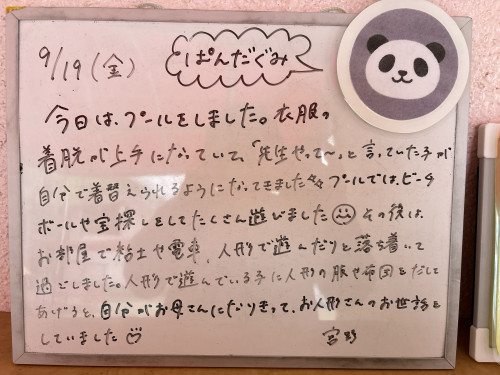 9/19(金) ぱんだぐみ
今日は、プールをしました。衣服の
着脱が上手になっていて、「先生やって〜」と言っていた子が
自分で着替えられるようになってきました プールでは、ビーチ
ボールや宝探しをしてたくさん遊びました その後は
お部屋で粘土や電車、人形で遊んだりと落ち着いて
過ごしました。人形で遊んでいる子に人形の服や布団をだして
あげると、自分がお母さんになりきって、お人形さんのお世話を
していました 宮野